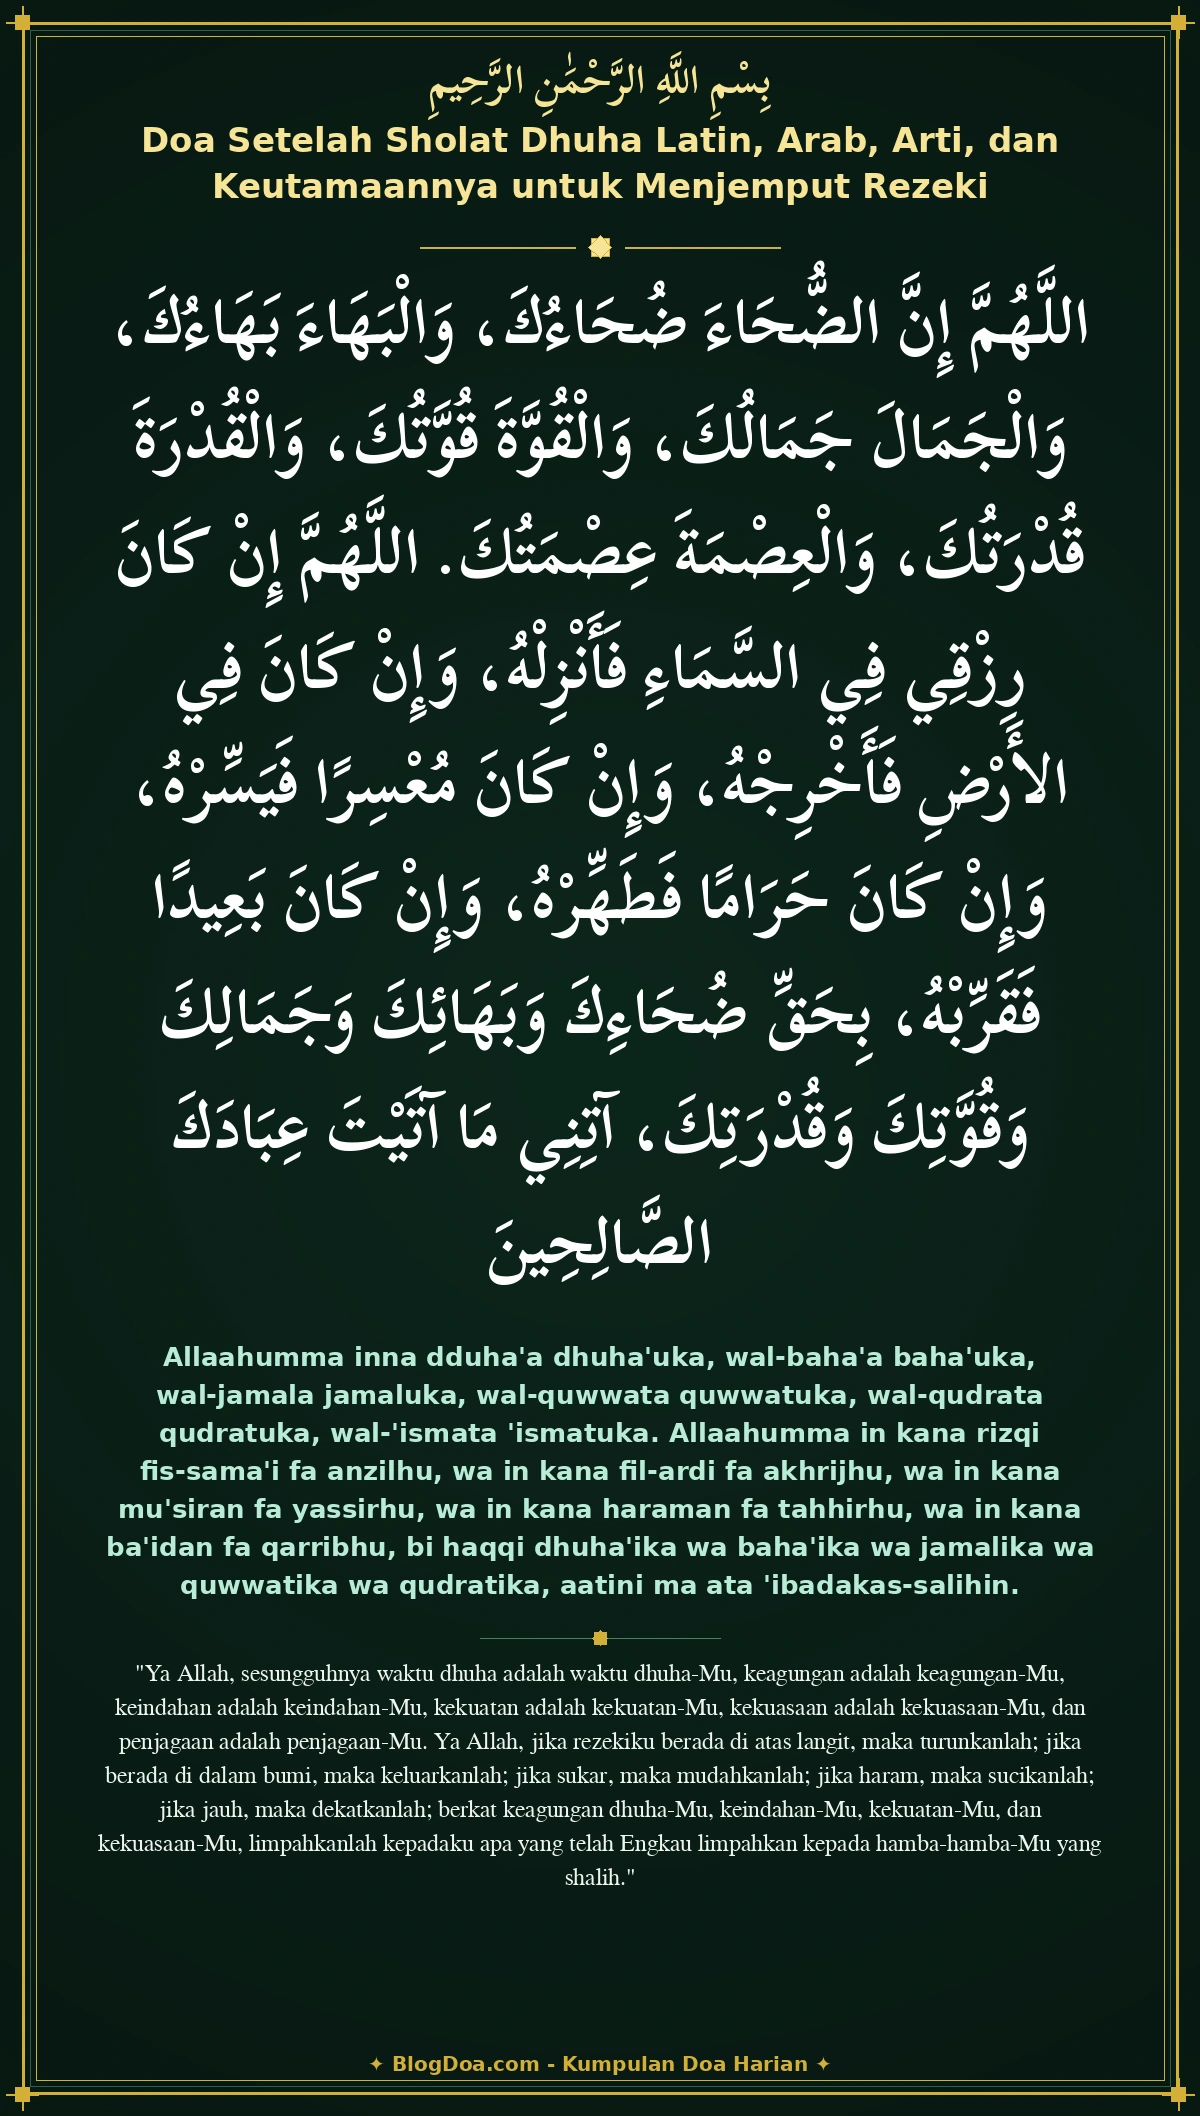 بِسْمِ اللَّهِ الرَّحْمَٰنِ الرَّحِيمِ
Doa Setelah Sholat Dhuha Latin, Arab, Arti, dan
Keutamaannya untuk Menjemput Rezeki
اللَّهُمَّ إِنَّ الضُّحَاءَ ضُحَاءُكَ، وَالْبَهَاءَ بَهَاءُكَ،
وَالْجَمَالَ جَمَالُكَ، وَالْقُوَّةَ قُوَّتُكَ، وَالْقُدْرَةَ
قُدْرَتُكَ، وَالْعِصْمَةَ عِصْمَتُكَ. اللَّهُمَّ إِنْ كَانَ
رِزْقِي فِي السَّمَاءِ فَأَنْزِلْهُ، وَإِنْ كَانَ فِي
الأَرْضِ فَأَخْرِجْهُ، وَإِنْ كَانَ مُعْسِرًا فَيَسِّرْهُ،
وَإِنْ كَانَ حَرَامًا فَطَهِّرْهُ، وَإِنْ كَانَ بَعِيدًا
فَقَرِّبْهُ، بِحَقِّ ضُحَاءِكَ وَبَهَائِكَ وَجَمَالِكَ
وَقُوَّتِكَ وَقُدْرَتِكَ، آتِنِي مَا آتَيْتَ عِبَادَكَ
الصَّالِحِينَ
Allaahumma inna dduha'a dhuha'uka, wal-baha'a baha'uka,
wal-jamala jamaluka, wal-quwwata quwwatuka, wal-qudrata
qudratuka, wal-'ismata 'ismatuka. Allaahumma in kana rizqi
fis-sama'i fa anzilhu, wa in kana fil-ardi fa akhrijhu, wa in kana
mu'siran fa yassirhu, wa in kana haraman fa tahhirhu, wa in kana
ba'idan fa qarribhu, bi haqqi dhuha'ika wa baha'ika wa jamalika wa
quwwatika wa qudratika, aatini ma ata 'ibadakas-salihin.
"Ya Allah, sesungguhnya waktu dhuha adalah waktu dhuha-Mu, keagungan adalah keagungan-Mu,
keindahan adalah keindahan-Mu, kekuatan adalah kekuatan-Mu, kekuasaan adalah kekuasaan-Mu, dan
penjagaan adalah penjagaan-Mu. Ya Allah, jika rezekiku berada di atas langit, maka turunkanlah; jika
berada di dalam bumi, maka keluarkanlah; jika sukar, maka mudahkanlah; jika haram, maka sucikanlah;
jika jauh, maka dekatkanlah; berkat keagungan dhuha-Mu, keindahan-Mu, kekuatan-Mu, dan
kekuasaan-Mu, limpahkanlah kepadaku apa yang telah Engkau limpahkan kepada hamba-hamba-Mu yang
shalih."
✦ BlogDoa.com - Kumpulan Doa Harian ✦